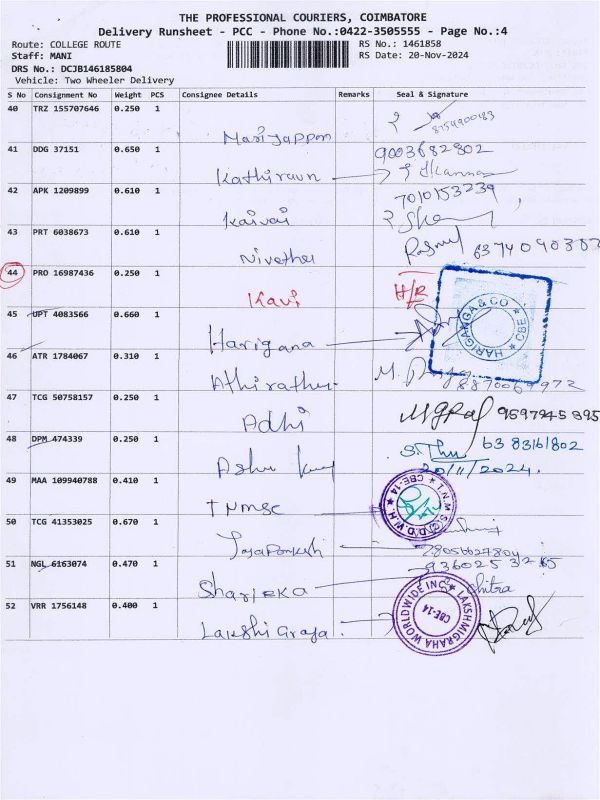 THE PROFESSIONAL COURIERS, COIMBATORE
Delivery Runsheet - PCC - Phone No.:0422-3505555 - Page No.:4
Route: COLLEGE ROUTE RS No.: 1461858
Staff: MANI RS Date: 20-Nov-2024
DRS No.: DCJB146185804
Vehicle: Two Wheeler Delivery
S No Consignment No Weight PCS Consignee Details Remarks Seal & Signature
40 TRZ 155707646 0.250 1
8754900483
Mariyappan
41 DDG 37151 0.650 1 9003682802
Kathiravn
42 APK 1209899 0.610 1 7010153239
Kaivai
43 PRT 6038673 0.610 1
Nivetha
44 PRO 16987436 0.250 1
Kavi H/R
45 UPT 4083566 0.660 1
Harigana
HARIGANGA & CO CBE
46 ATR 1784067 0.310 1
47 TCG 50758157 0.250 1
Adhi
48 DPM 474339 0.250 1 63 83161802
20/11/2024.
49 MAA 109940788 0.410 1
TNMSC
CBE-14
50 TCG 41353025 0.670 1
51 NGL 6163074 0.470 1
Sharieka
52 VRR 1756148 0.400 1
LAKSHMIGRAHA WORLDWIDE INC CBE-14